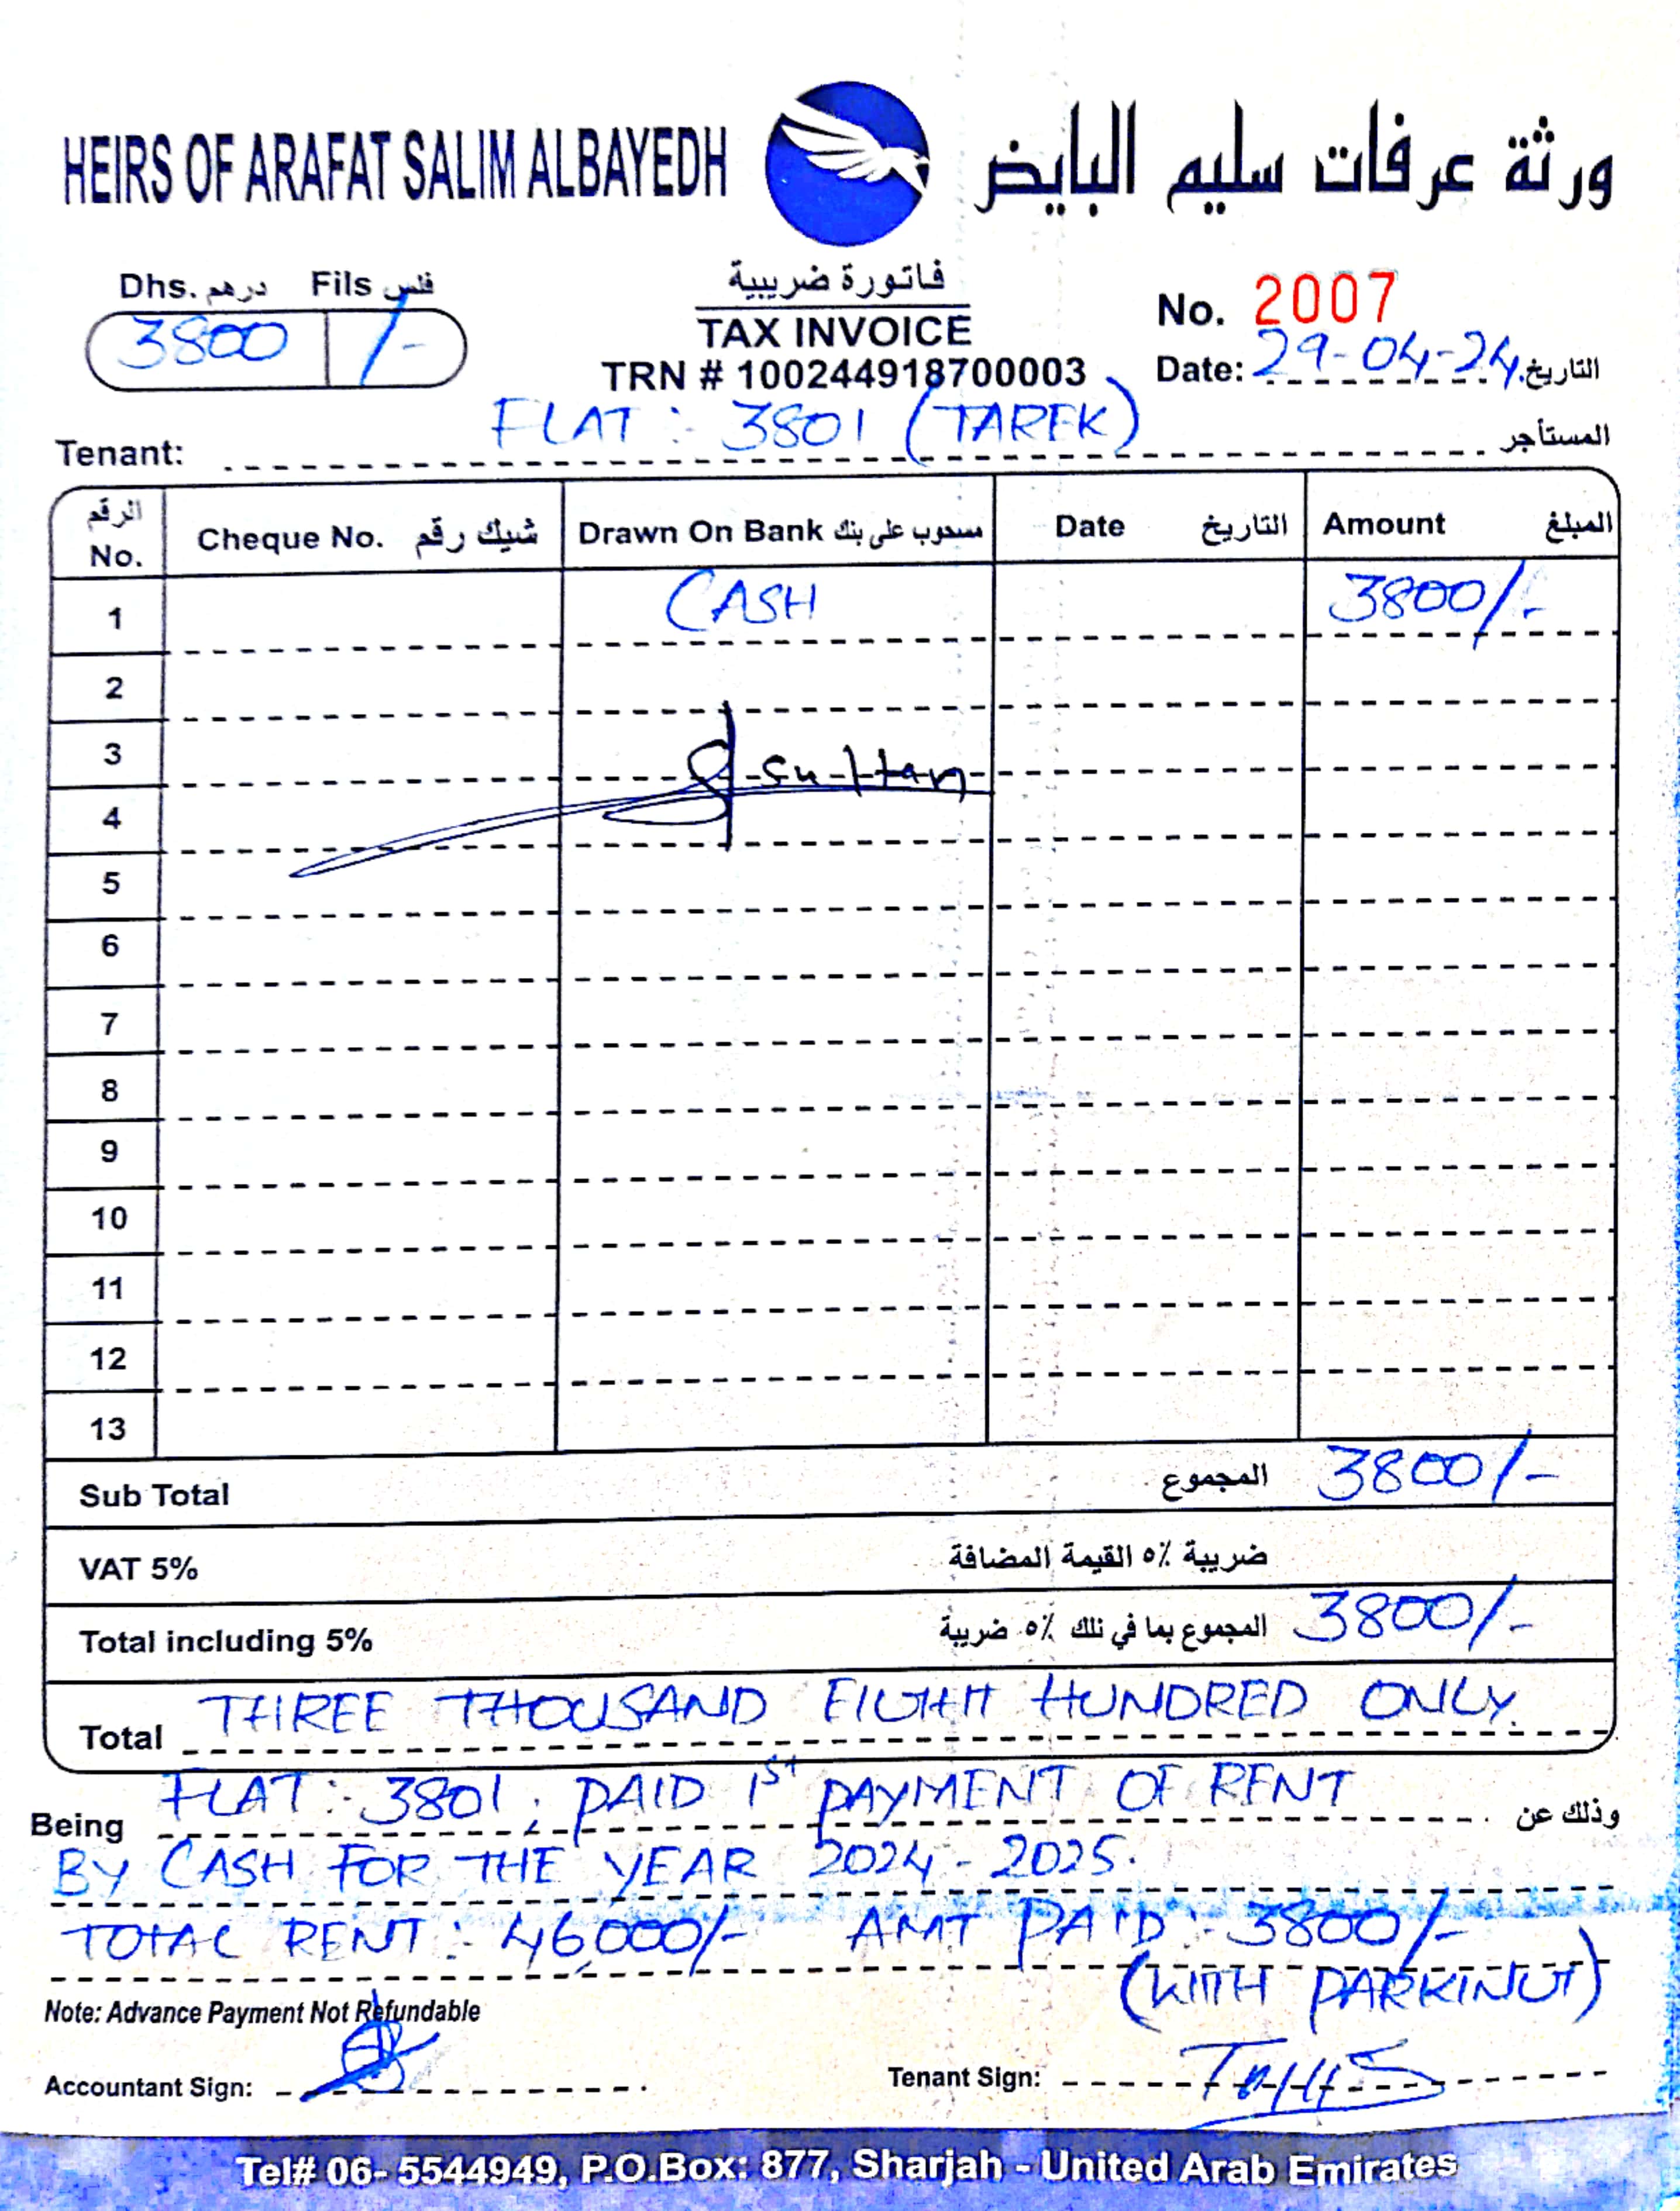 HEIRS OF ARAFAT SALIM ALBAYEDH ورثة عرفات سليم البايض
Dhs. درهم Fils فلس
3800 /-
فاتورة ضريبية
TAX INVOICE
TRN # 100244918700003
No. 2007
Date: 29-04-24 التاريخ
Tenant: FLAT : 3801 (TAREK) المستأجر
الرقم No. Cheque No. شيك رقم Drawn On Bank مسحوب على بنك Date التاريخ Amount المبلغ
1 CASH 3800/-
2
3 sultan
4
5
6
7
8
9
10
11
12
13
Sub Total المجموع 3800/-
VAT 5% ضريبة ٥٪ القيمة المضافة
Total including 5% المجموع بما في ذلك ٥٪ ضريبة 3800/-
Total THREE THOUSAND EIGHT HUNDRED ONLY.
Being FLAT: 3801, PAID 1st PAYMENT OF RENT وذلك عن
BY CASH FOR THE YEAR 2024-2025.
TOTAL RENT: 46,000/- AMT PAID:- 3800/-
(WITH PARKING)
Note: Advance Payment Not Refundable
Accountant Sign: Tenant Sign:
Tel# 06- 5544949, P.O.Box: 877, Sharjah - United Arab Emirates